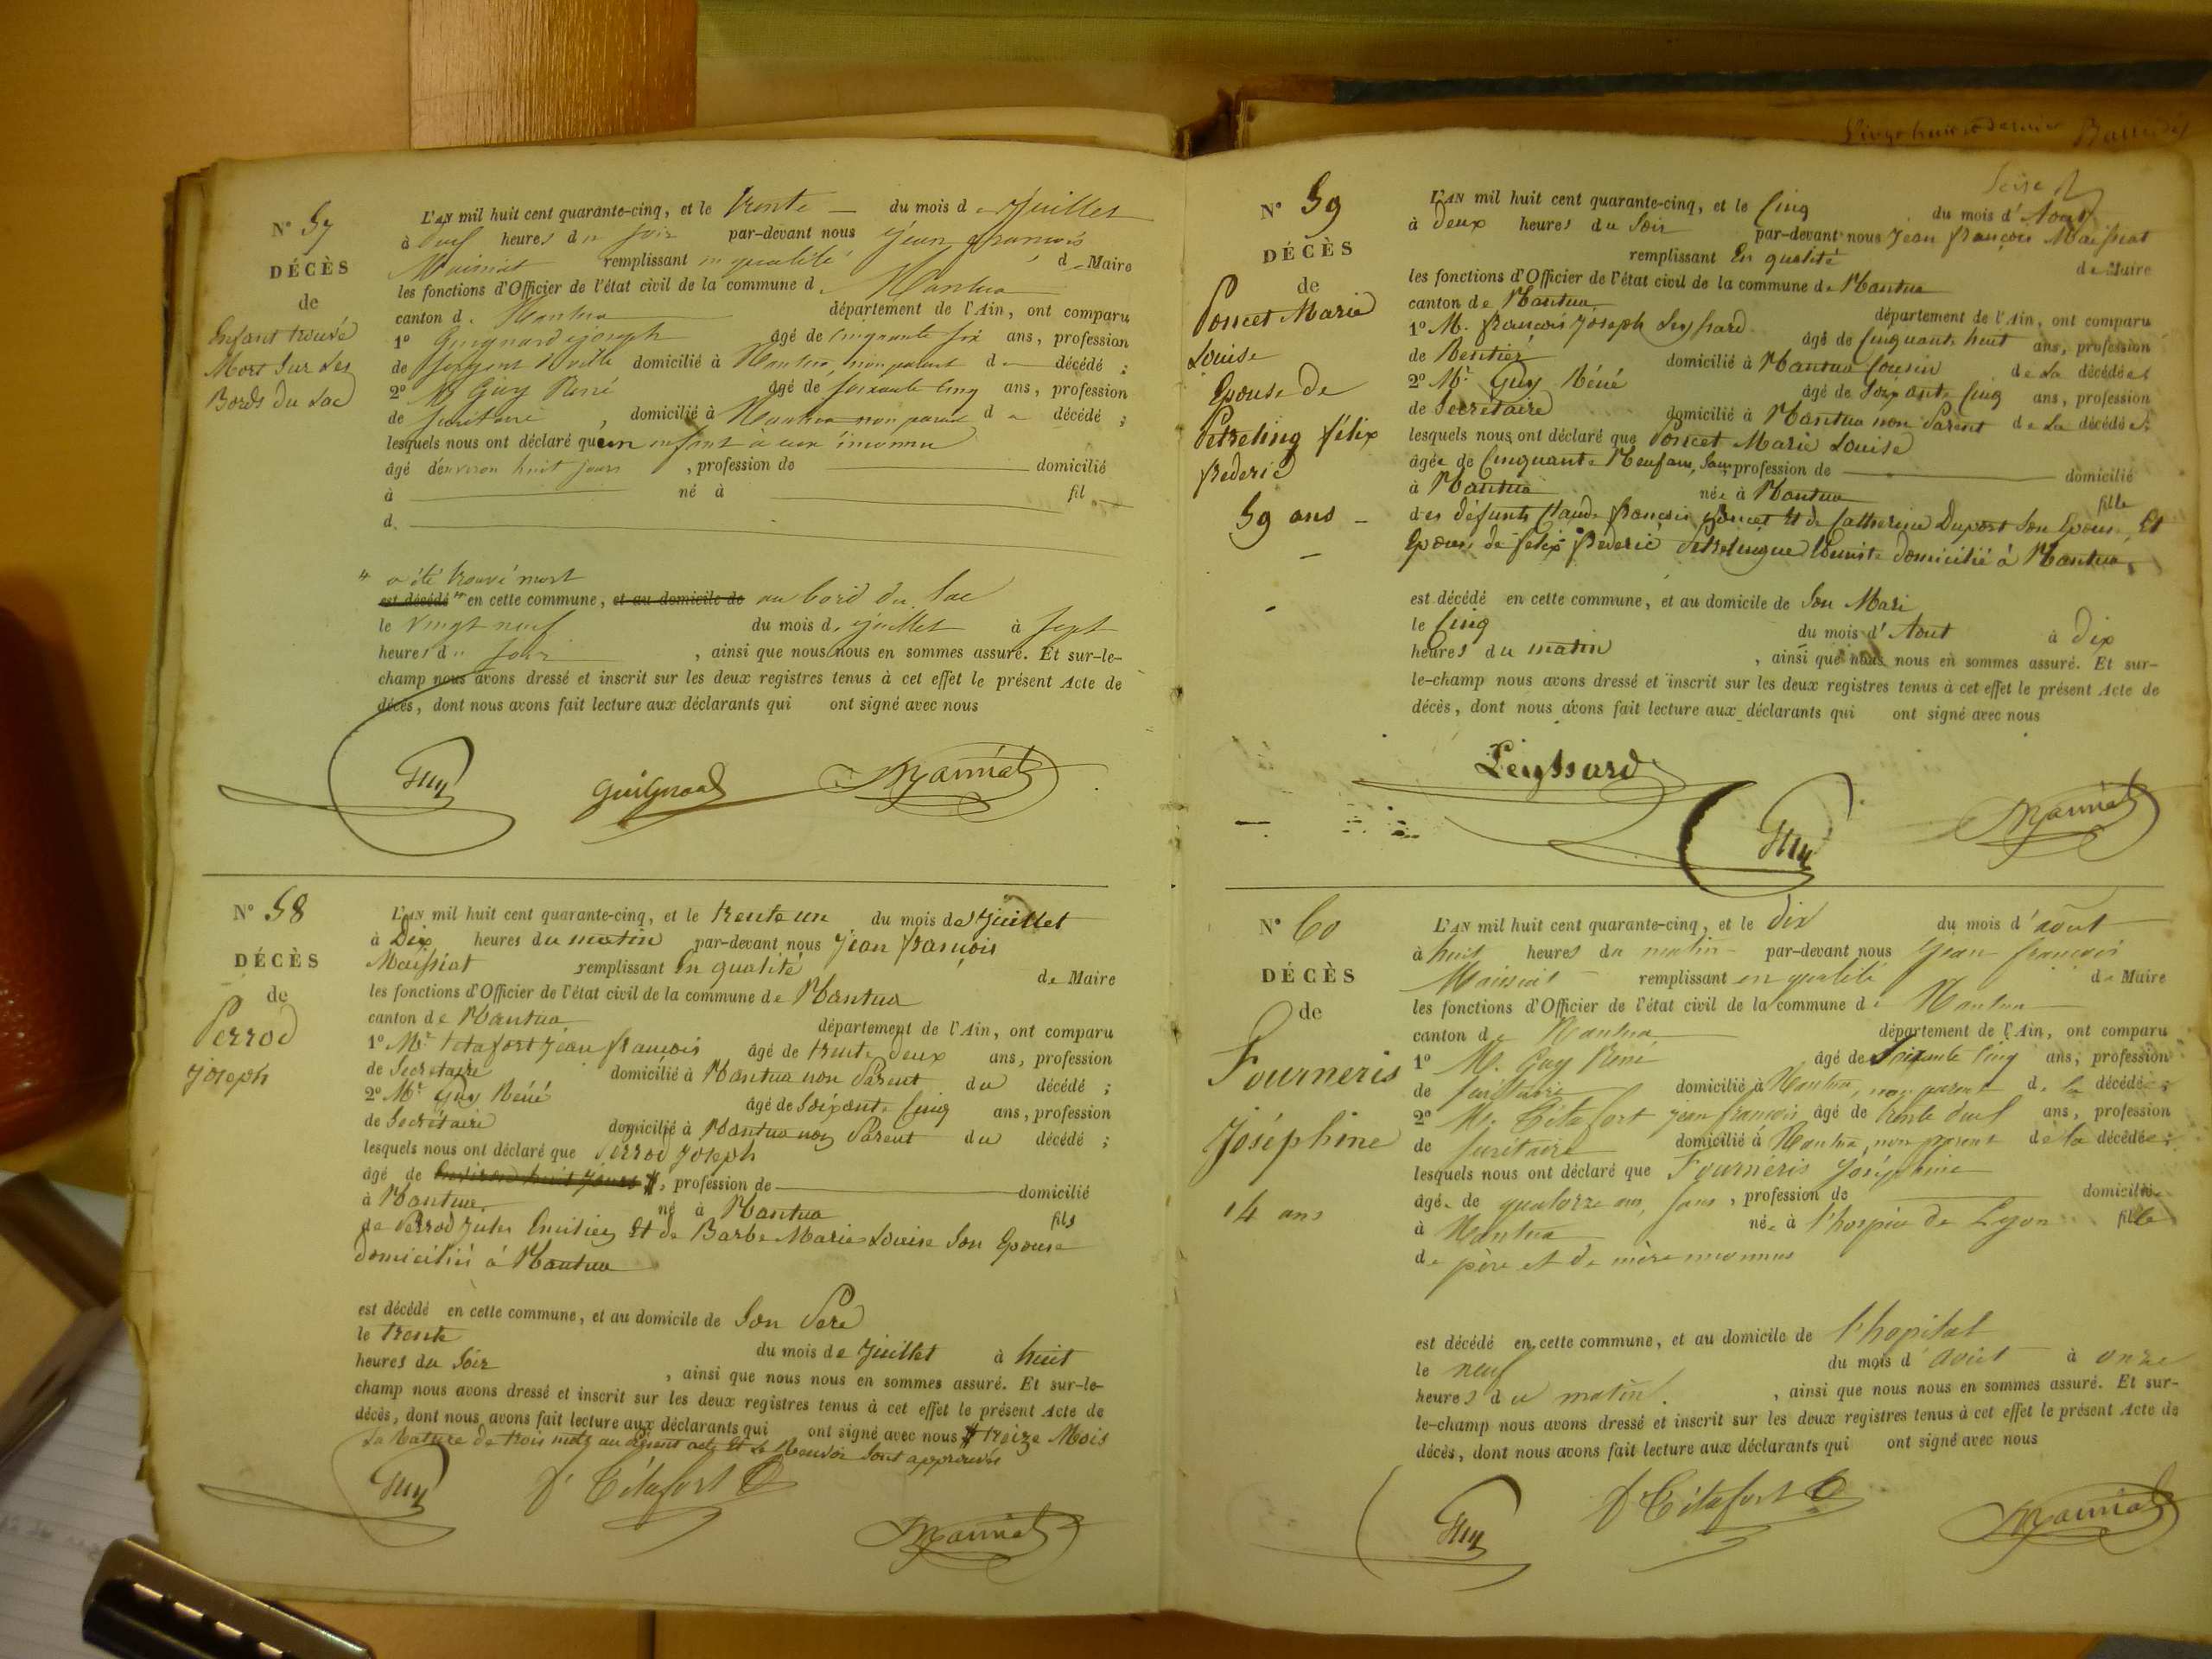 N° 57
DÉCÈS
de
Enfant trouvé
Mort Sur Les
Bords du Lac
L'AN mil huit cent quarante-cinq, et le trente du mois de Juillet
à deux heures du soir par-devant nous Jean François
Maissiat remplissant en qualité de Maire
les fonctions d'Officier de l'état civil de la commune de Nantua
canton de Nantua département de l'Ain, ont comparu
1° Guignard Joseph âgé de cinquante six ans, profession
de Sergent de ville domicilié à Nantua, non parent d décédé ;
2° M. Guy Réné âgé de soixante cinq ans, profession
de secrétaire, domicilié à Nantua non parent d décédé ;
lesquels nous ont déclaré qu'un enfant à eux inconnu
âgé d'environ huit jours, profession de domicilié
à né à fil
d
" a été trouvé mort
est décédé " en cette commune, et au domicile de au bord du lac
le vingt neuf du mois de juillet à sept
heures du soir, ainsi que nous nous en sommes assuré. Et sur-le-
champ nous avons dressé et inscrit sur les deux registres tenus à cet effet le présent Acte de
décès, dont nous avons fait lecture aux déclarants qui ont signé avec nous
Guy Guignard Maissiat
N° 58
DÉCÈS
de
Perrod
Joseph
L'AN mil huit cent quarante-cinq, et le trente un du mois de Juillet
à Dix heures du matin par-devant nous Jean François
Maissiat remplissant En qualité de Maire
les fonctions d'Officier de l'état civil de la commune de Nantua
canton de Nantua département de l'Ain, ont comparu
1° Mr Tétafort Jean François âgé de trente deux ans, profession
de Secrétaire domicilié à Nantua non Parent du décédé ;
2° Mr Guy Réné âgé de Soixante Cinq ans, profession
de Secrétaire domicilié à Nantua non Parent du décédé ;
lesquels nous ont déclaré que Perrod Joseph
âgé de Environ huit Jours #, profession de domicilié
à Nantua né à Nantua fils
de Perrod Jules Emilien Et de Barbe Marie Louise Son Epouse
domiciliés à Nantua
est décédé en cette commune, et au domicile de Son Père
le trente du mois de Juillet à huit
heures du Soir, ainsi que nous nous en sommes assuré. Et sur-le-
champ nous avons dressé et inscrit sur les deux registres tenus à cet effet le présent Acte de
décès, dont nous avons fait lecture aux déclarants qui ont signé avec nous # treize Mois
La Rature de trois mots au Présent acte Et Le Renvoi Sont approuvés
Guy Tétafort Maissiat
N° 59
DÉCÈS
de
Poncet Marie
Louise
Epouse De
Petreling félix
frederic
59 ans
L'AN mil huit cent quarante-cinq, et le Cinq du mois d'Aout
à Deux heures du Soir par-devant nous Jean François Maissiat
remplissant En qualité de Maire
les fonctions d'Officier de l'état civil de la commune de Nantua
canton de Nantua département de l'Ain, ont comparu
1° M. François Joseph Leyssard âgé de Cinquante huit ans, profession
de Rentier domicilié à Nantua Cousin de La décédée
2° Mr Guy Réné âgé de Soixante Cinq ans, profession
de Secrétaire domicilié à Nantua non Parent de La décédée ;
lesquels nous ont déclaré que Poncet Marie Louise
âgée de Cinquante Neuf ans, Sans profession de domicilié
à Nantua née à Nantua fille
des défunts Claude François Poncet Et de Catherine Duport Son Epouse, Et
Epouse de félix frederic domicilié à Nantua
est décédé en cette commune, et au domicile de Son Mari
le Cinq du mois d'Aout à Dix
heures du matin, ainsi que nous nous en sommes assuré. Et sur-
le-champ nous avons dressé et inscrit sur les deux registres tenus à cet effet le présent Acte de
décès, dont nous avons fait lecture aux déclarants qui ont signé avec nous
Leyssard
Guy Maissiat
N° 60
DÉCÈS
de
Fourneris
Joséphine
14 ans
L'AN mil huit cent quarante-cinq, et le dix du mois d'août
à huit heures du matin par-devant nous Jean françois
Maissiat remplissant en qualité de Maire
les fonctions d'Officier de l'état civil de la commune de Nantua
canton de Nantua département de l'Ain, ont comparu
1° M. Guy Réné âgé de Soixante Cinq ans, profession
de secrétaire domicilié à Nantua, non parent de la décédée ;
2° Mr. Tétafort jean françois, âgé de trente deux ans, profession
de secrétaire domicilié à Nantua, non parent de la décédée ;
lesquels nous ont déclaré que Fourneris Joséphine
âgée de quatorze ans, sans, profession de domiciliée
à Nantua née à l'hospice de Lyon fille
de père et de mère inconnus
est décédé en cette commune, et au domicile de l'hopital
le neuf du mois d'août à onze
heures du matin, ainsi que nous nous en sommes assuré. Et sur-
le-champ nous avons dressé et inscrit sur les deux registres tenus à cet effet le présent Acte de
décès, dont nous avons fait lecture aux déclarants qui ont signé avec nous
Guy Tétafort Maissiat